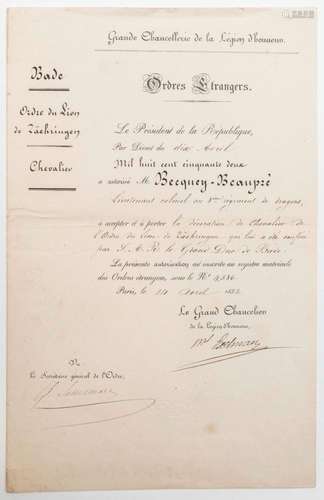 Grande Chancellerie de la Légion d'honneur.
Bade
Ordre du Lion
de Zaehringen
Chevalier
Ordres Etrangers.
Le Président de la République,
Par Décret du dix Avril
Mil huit cent cinquante deux
a autorisé M. Becquey-Beaupré
Lieutenant colonel au régiment de dragons,
à accepter et à porter la décoration de Chevalier de
l'Ordre du Lion de Zaehringen que lui a été conférée
par S. A. R. le Grand Duc de Bade.
La présente autorisation est inscrite au registre matricule
des Ordres étrangers, sous le N°
Paris, le avril 1852.
Le Grand Chancelier
de la Légion d'honneur,
Vu
Le Secrétaire général de l'Ordre,